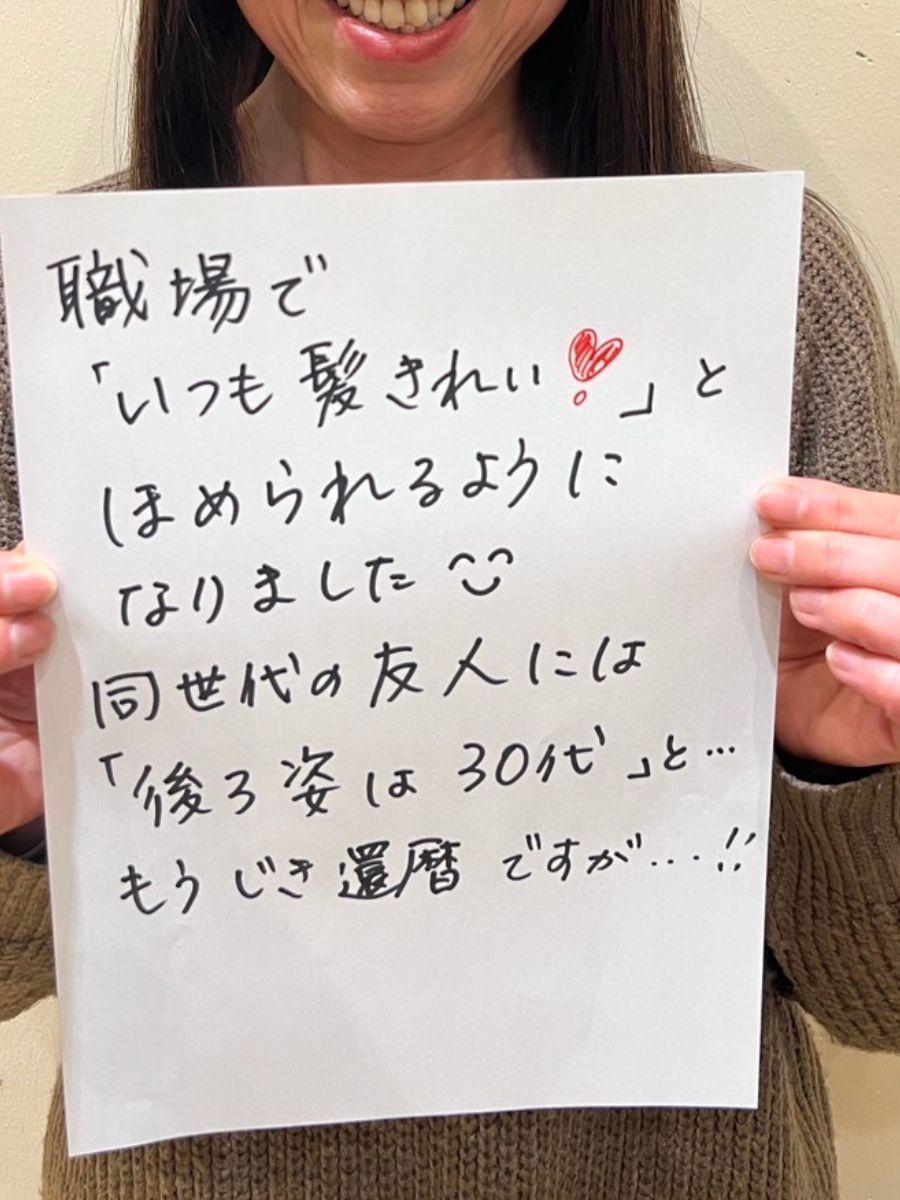 職場で
「いつも髪きれい❣」と
ほめられるように
なりました
同世代の友人には
「後ろ姿は30代」と…
もうじき還暦ですが…!!